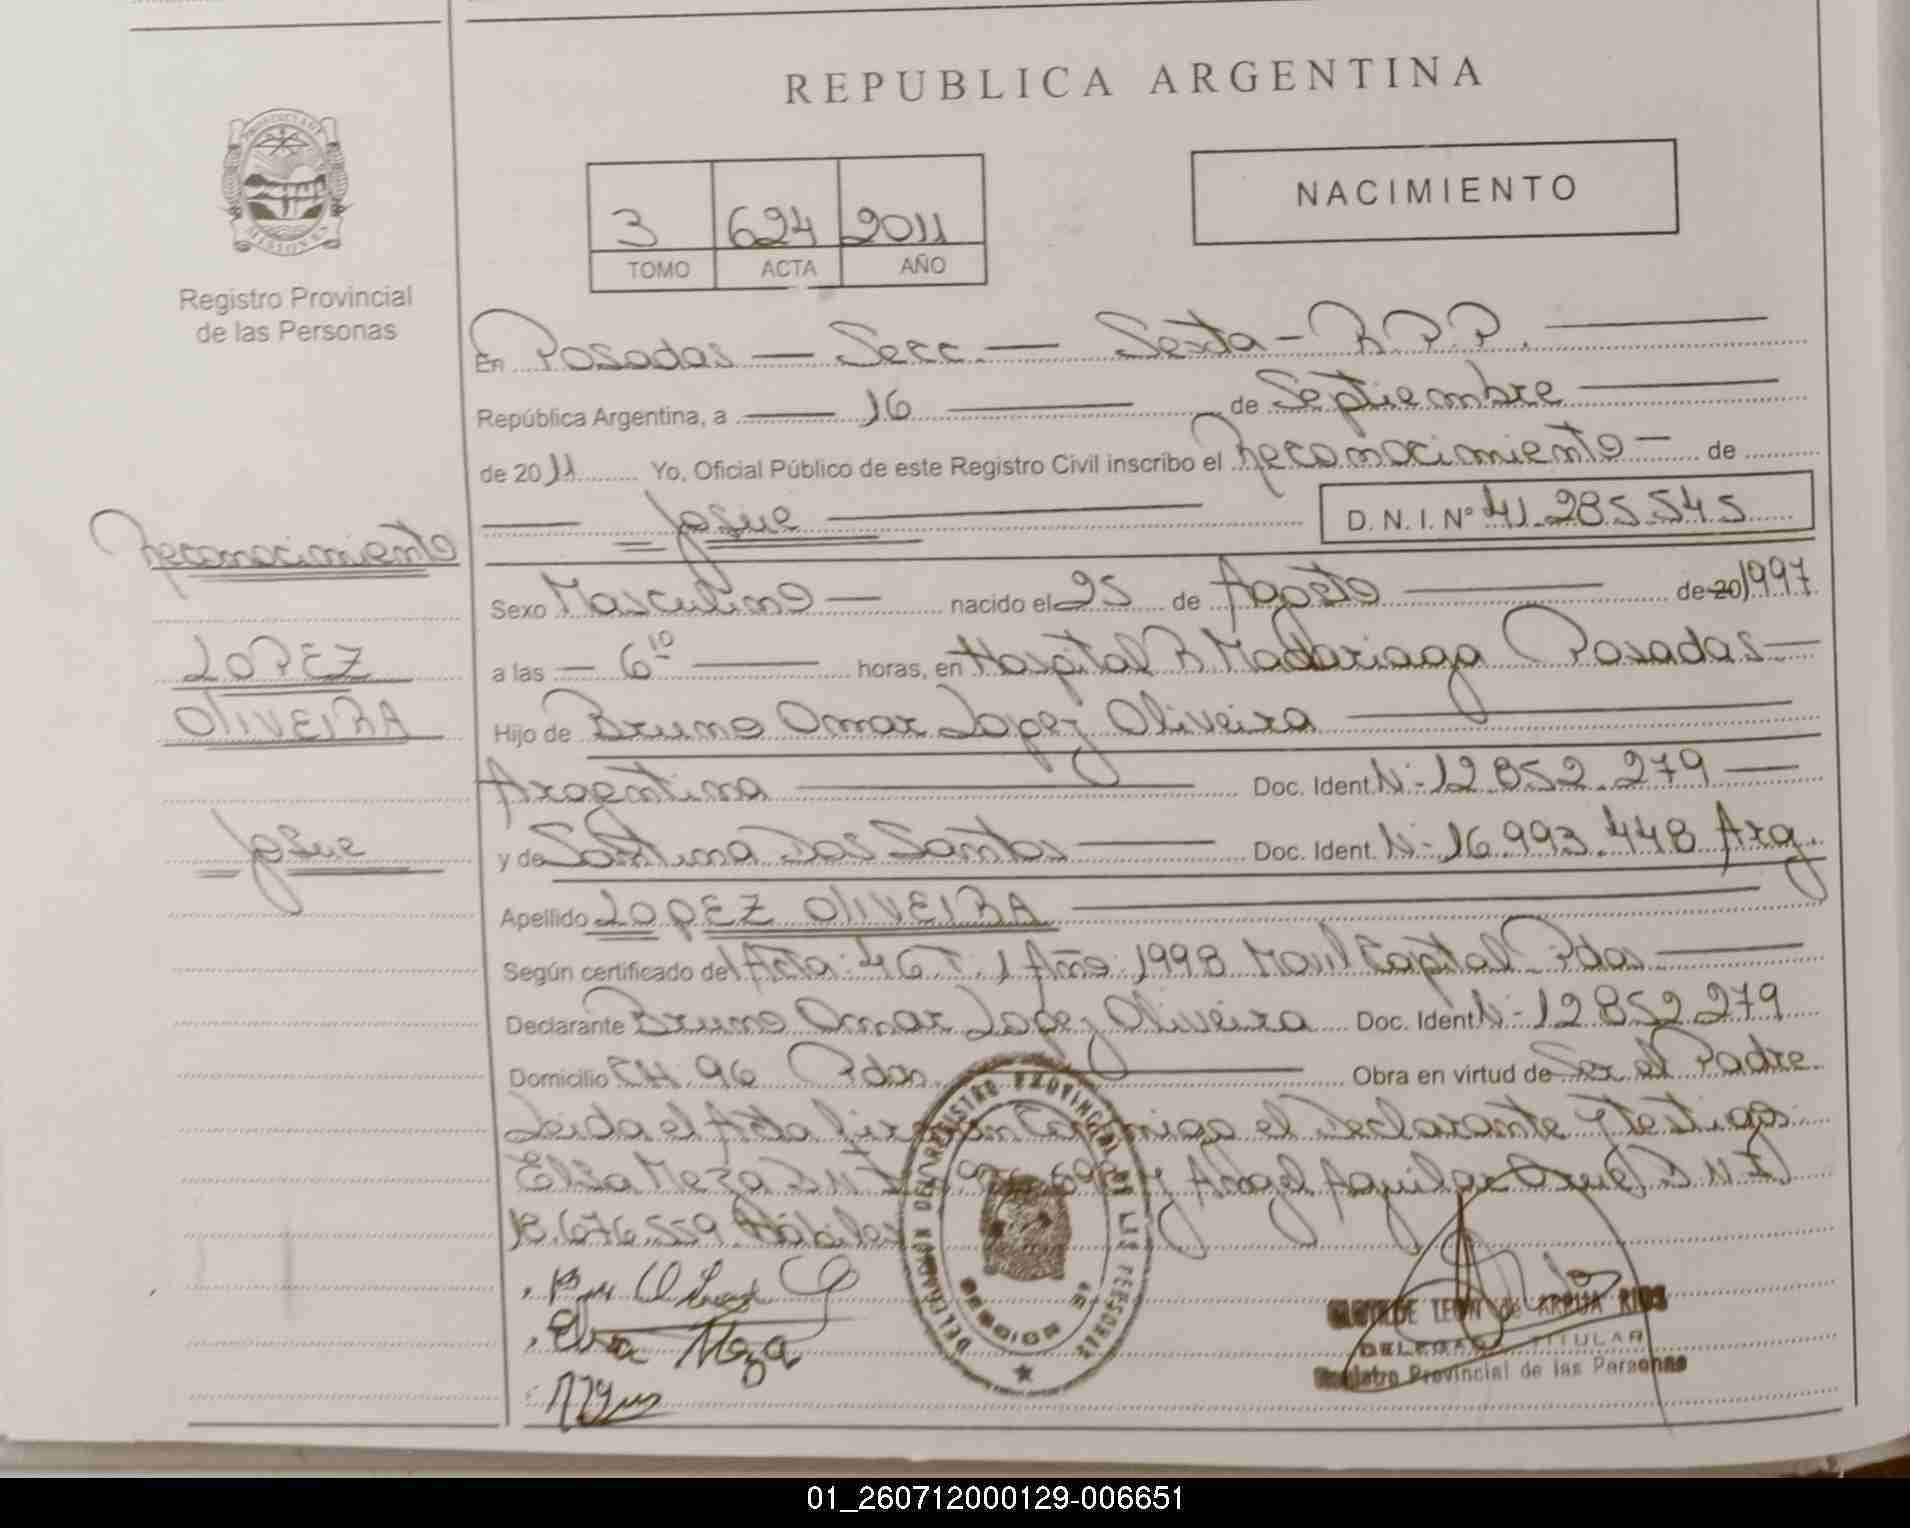 REPUBLICA ARGENTINA
NACIMIENTO
3 624 2011
TOMO ACTA AÑO
Registro Provincial
de las Personas
Reconocimiento
LOPEZ
OLIVEIRA
Josue
En Posadas — Secc. — Sexta — R.P.P.
República Argentina, a — 16 — de Septiembre —
de 2011 Yo, Oficial Público de este Registro Civil inscribo el Reconocimiento — de
— Josue — D. N. I. Nº 41.285.545
Sexo Masculino — nacido el 25 de Agosto — de 20 1997
a las — 6 10 — horas, en Hospital R Madariaga Posadas —
Hijo de Bruno Omar Lopez Oliveira —
Argentina — Doc. Ident. N- 12.852.279 —
y de Dos Santos — Doc. Ident. N- 16.993.448 Arg.
Apellido LOPEZ OLIVEIRA —
Según certificado del Acta: 46 T: 1 Año 1998 Pdas —
Declarante Bruno Omar Lopez Oliveira Doc. Ident. N- 12852279
Domicilio CH. 96 Pdas. — Obra en virtud de Ser el Padre
Leida el Acta el Declarante y testigos
Elsa Meza
Elsa Meza
DELEGACION DEL REGISTRO PROVINCIAL DE LAS PERSONAS
DELEGADA TITULAR
Registro Provincial de las Personas
01_260712000129-006651